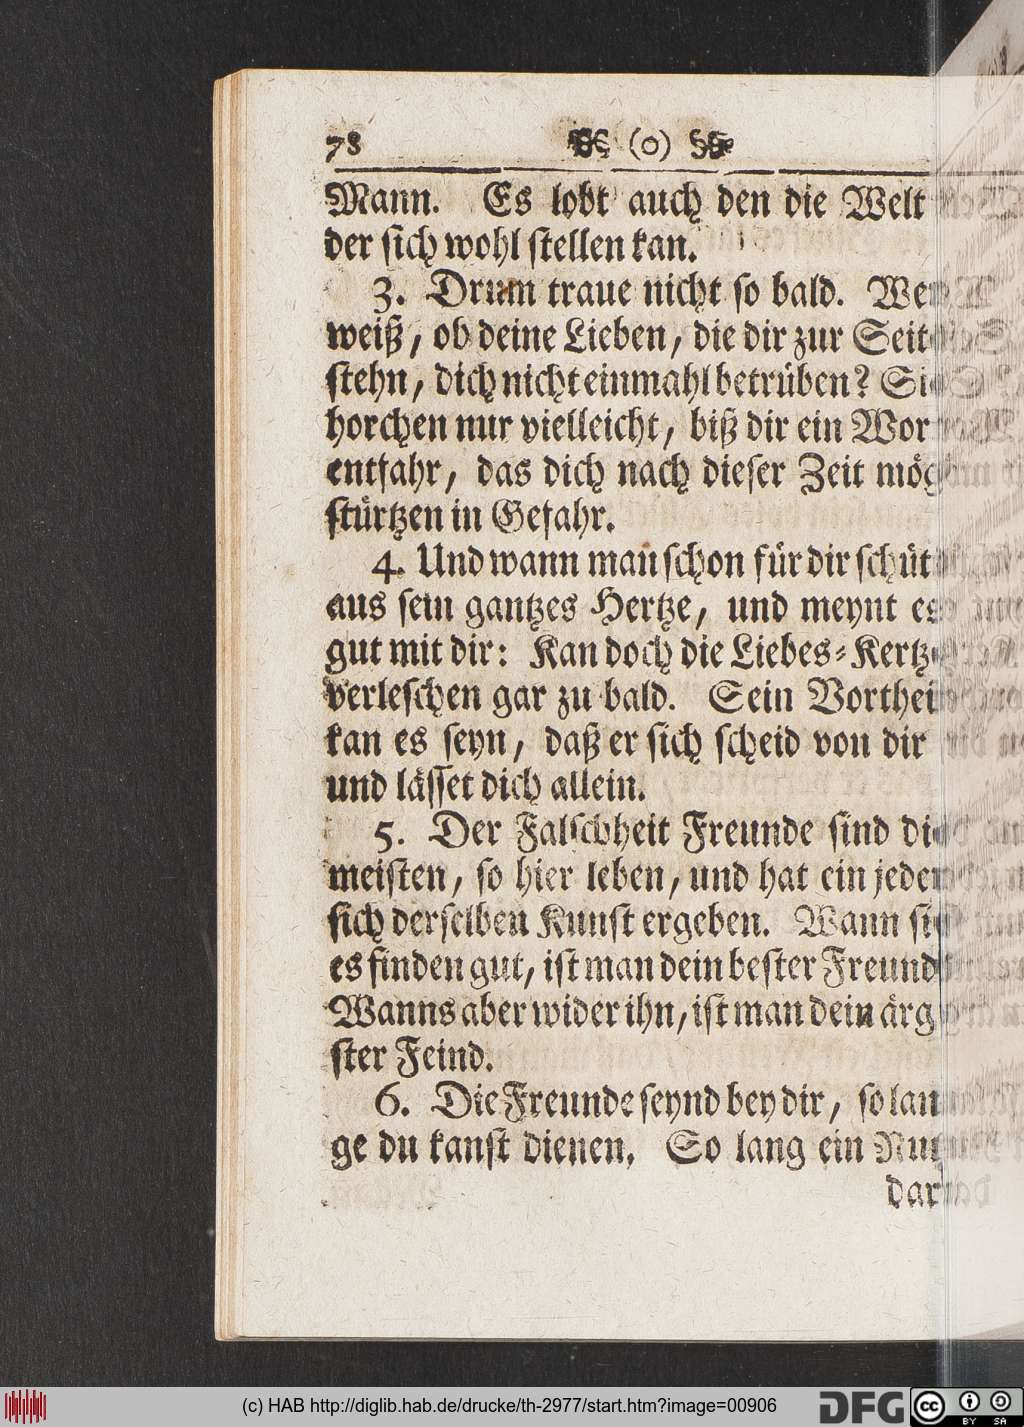 78 (o)
Mann. Es lobt auch den die Welt
der sich wohl stellen kan.
3. Drum traue nicht so bald. Wer
weiß, ob deine Lieben, die dir zur Seit
stehn, dich nicht einmahl betrüben? Sie
horchen nur vielleicht, biß dir ein Wor
entfahr, das dich nach dieser Zeit mög
stürtzen in Gefahr.
4. Und wann man schon für dir schüt
aus sein gantzes Hertze, und meynt es
gut mit dir: Kan doch die Liebes-Kertz
verleschen gar zu bald. Sein Vorthei
kan es seyn, daß er sich scheid von dir
und lässet dich allein.
5. Der Falschheit Freunde sind die
meisten, so hier leben, und hat ein jeder
sich derselben Kunst ergeben. Wann sie
es finden gut, ist man dein bester Freund
Wanns aber wider ihn, ist man dein ärg
ster Feind.
6. Die Freunde seynd bey dir, so lan
ge du kanst dienen. So lang ein Nu
dar
(c) HAB http://diglib.hab.de/drucke/th-2977/start.htm?image=00906
DFG cc BY SA